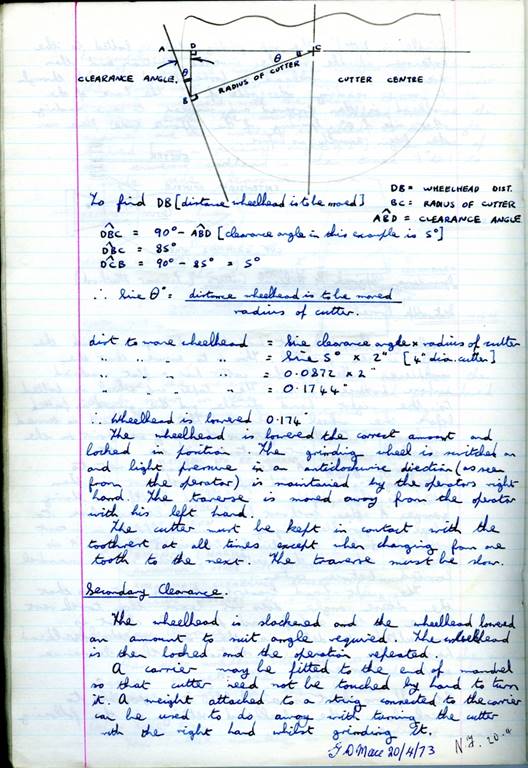 A D θ C
CLEARANCE ANGLE. θ RADIUS OF CUTTER CUTTER CENTRE
B
DB = WHEELHEAD DIST.
To find DB [distance wheelhead is to be moved] BC = RADIUS OF CUTTER
AB̂D = CLEARANCE ANGLE
DB̂C = 90° - AB̂D [clearance angle in this example is 5°]
DB̂C = 85°
DĈB = 90° - 85° = 5°
∴ Sine θ° = distance wheelhead is to be moved
radius of cutter.
dist to move wheelhead = Sine clearance angle × radius of cutter
" " " " = Sine 5° × 2" [4" dia. cutter]
" " " " = 0.0872 × 2"
" " " " = 0.1744"
∴ Wheelhead is lowered 0.174"
The wheelhead is lowered the correct amount and
locked in position. The grinding wheel is switched on
and light pressure in an anticlockwise direction (as seen
from the operator) is maintained by the operators right
hand. The traverse is moved away from the operator
with his left hand.
The cutter must be kept in contact with the
toothrest at all times except when changing from one
tooth to the next. The traverse must be slow.
Secondary Clearance.
The wheelhead is slackened and the wheelhead lowered
an amount to suit angle required. The wheelhead
is then locked and the operation repeated.
A carrier may be fitted to the end of mandrel
so that cutter need not be touched by hand to turn
it. A weight attached to a string connected to the carrier
can be used to do away with turning the cutter
with the right hand whilst grinding it.
20/4/73